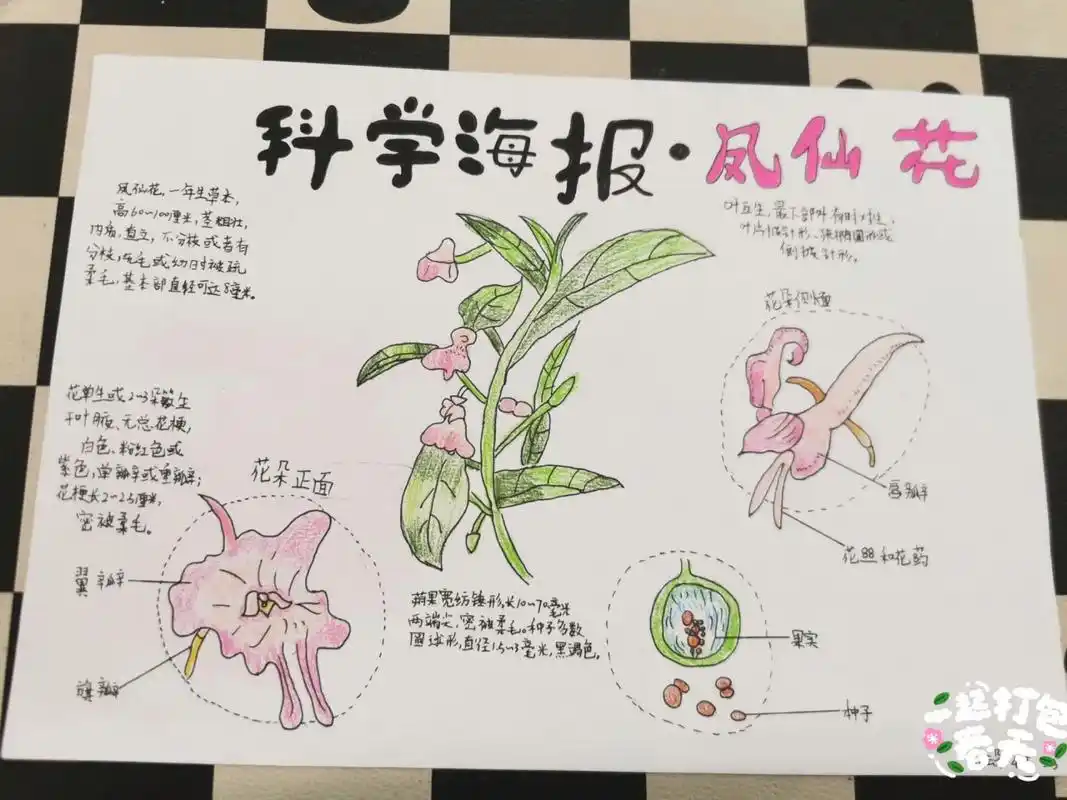 科学海报·凤仙花
凤仙花,一年生草本,
高60~100厘米,茎粗壮,
肉质,直立,不分枝或者有
分枝,无毛或幼时被疏
柔毛,基本部直轻可达8厘米。
叶互生,最下部叶有时对生,
叶片披针形、狭椭圆形或
倒披针形。
花朵侧面
唇瓣
花丝和花药
花单生或2~3朵簇生
于叶腋、无总花梗,
白色、粉红色或
紫色,单瓣或重瓣;
花梗长2~2.5厘米,
密被柔毛。
花朵正面
翼瓣
旗瓣
蒴果宽纺锤形,长10~20毫米
两端尖,密被柔毛。种子多数
圆球形,直径1.5~3毫米,黑褐色。
果实
种子
一起打包
春天